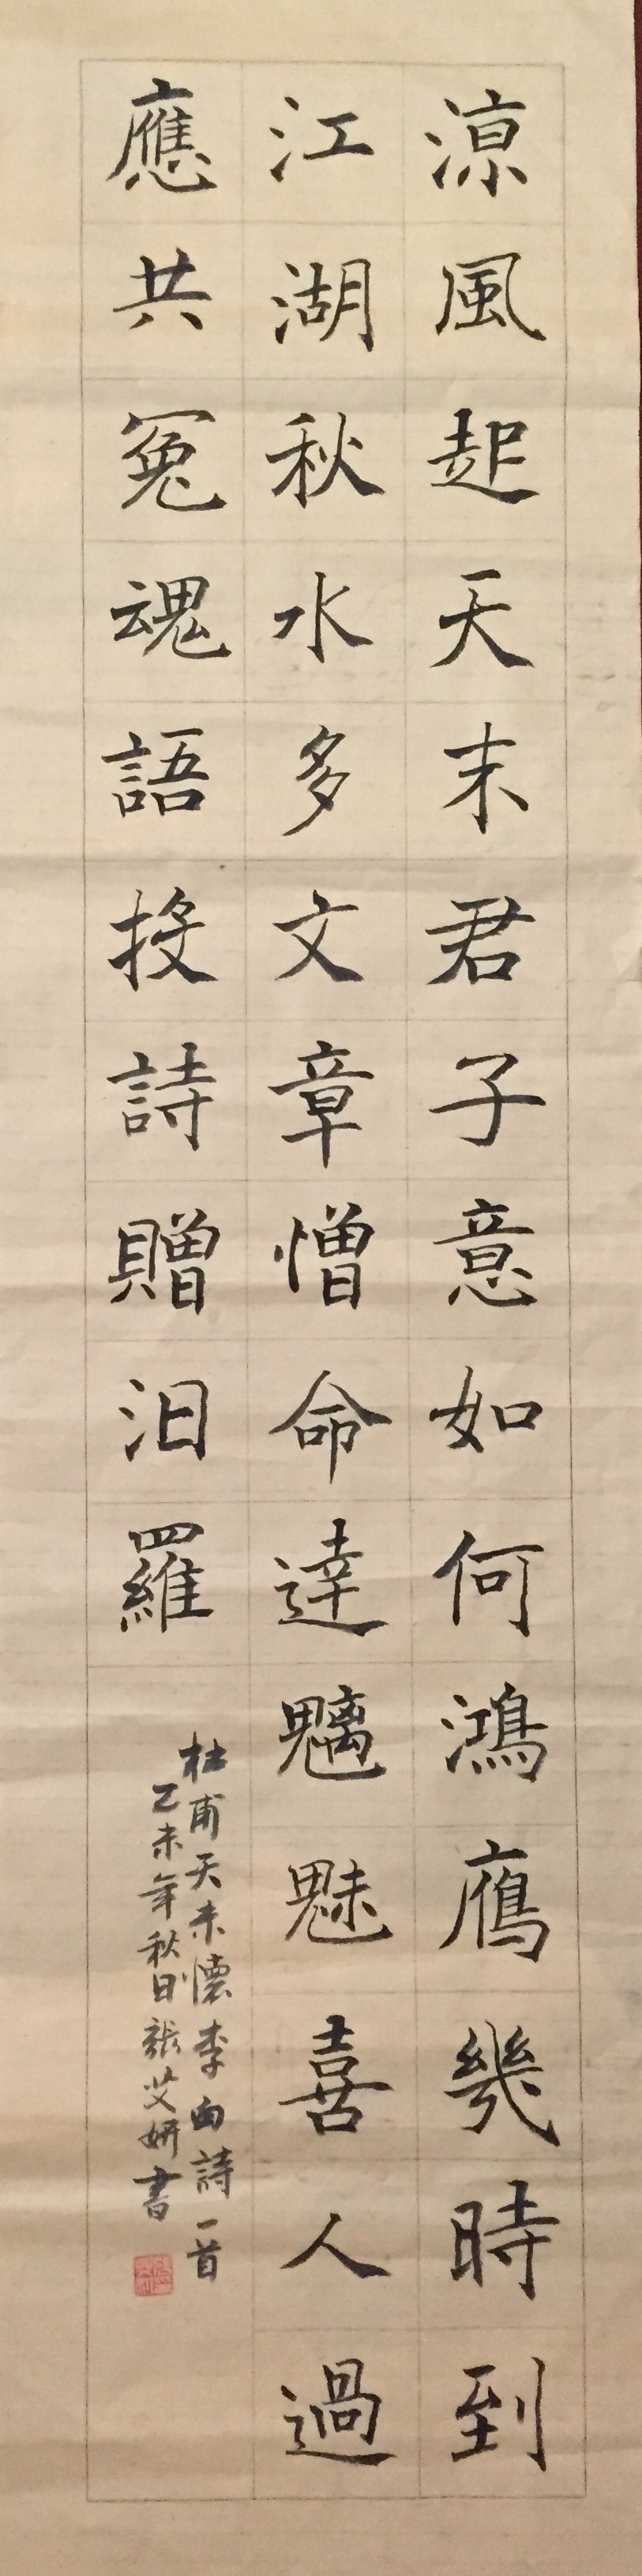 涼風起天末君子意如何鴻鴈幾時到
江湖秋水多文章憎命達魑魅喜人過
應共冤魂語投詩贈汨羅
杜甫天末懷李白詩一首
乙未年秋日張艾妍書